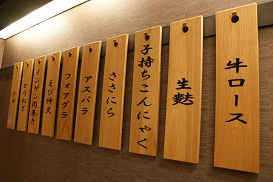 牛ロース
生麩
子持ちこんにゃく
ささにら
アスパラ
フォアグラ
えび伸丈
インゲン肉巻き